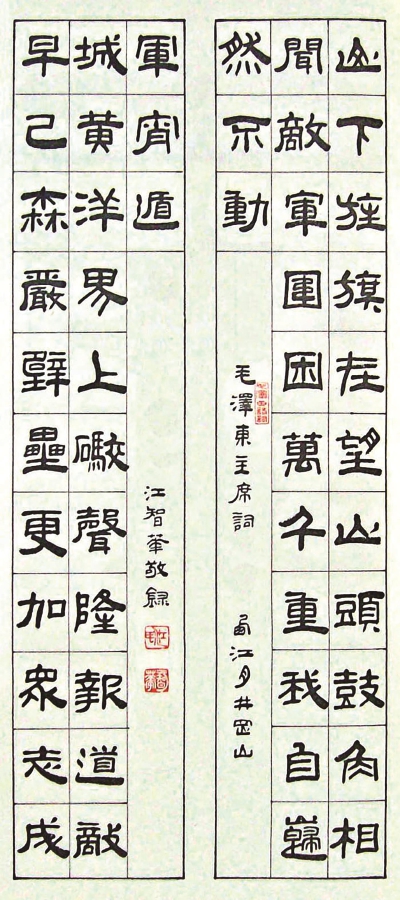 山下旌旗在望山頭鼓角相
聞敵軍圍困萬千重我自巋
然不動
毛澤東主席詞 西江月井岡山
早已森嚴壁壘更加眾志成
城黃洋界上礮聲隆報道敵
軍宵遁
江智 敬錄